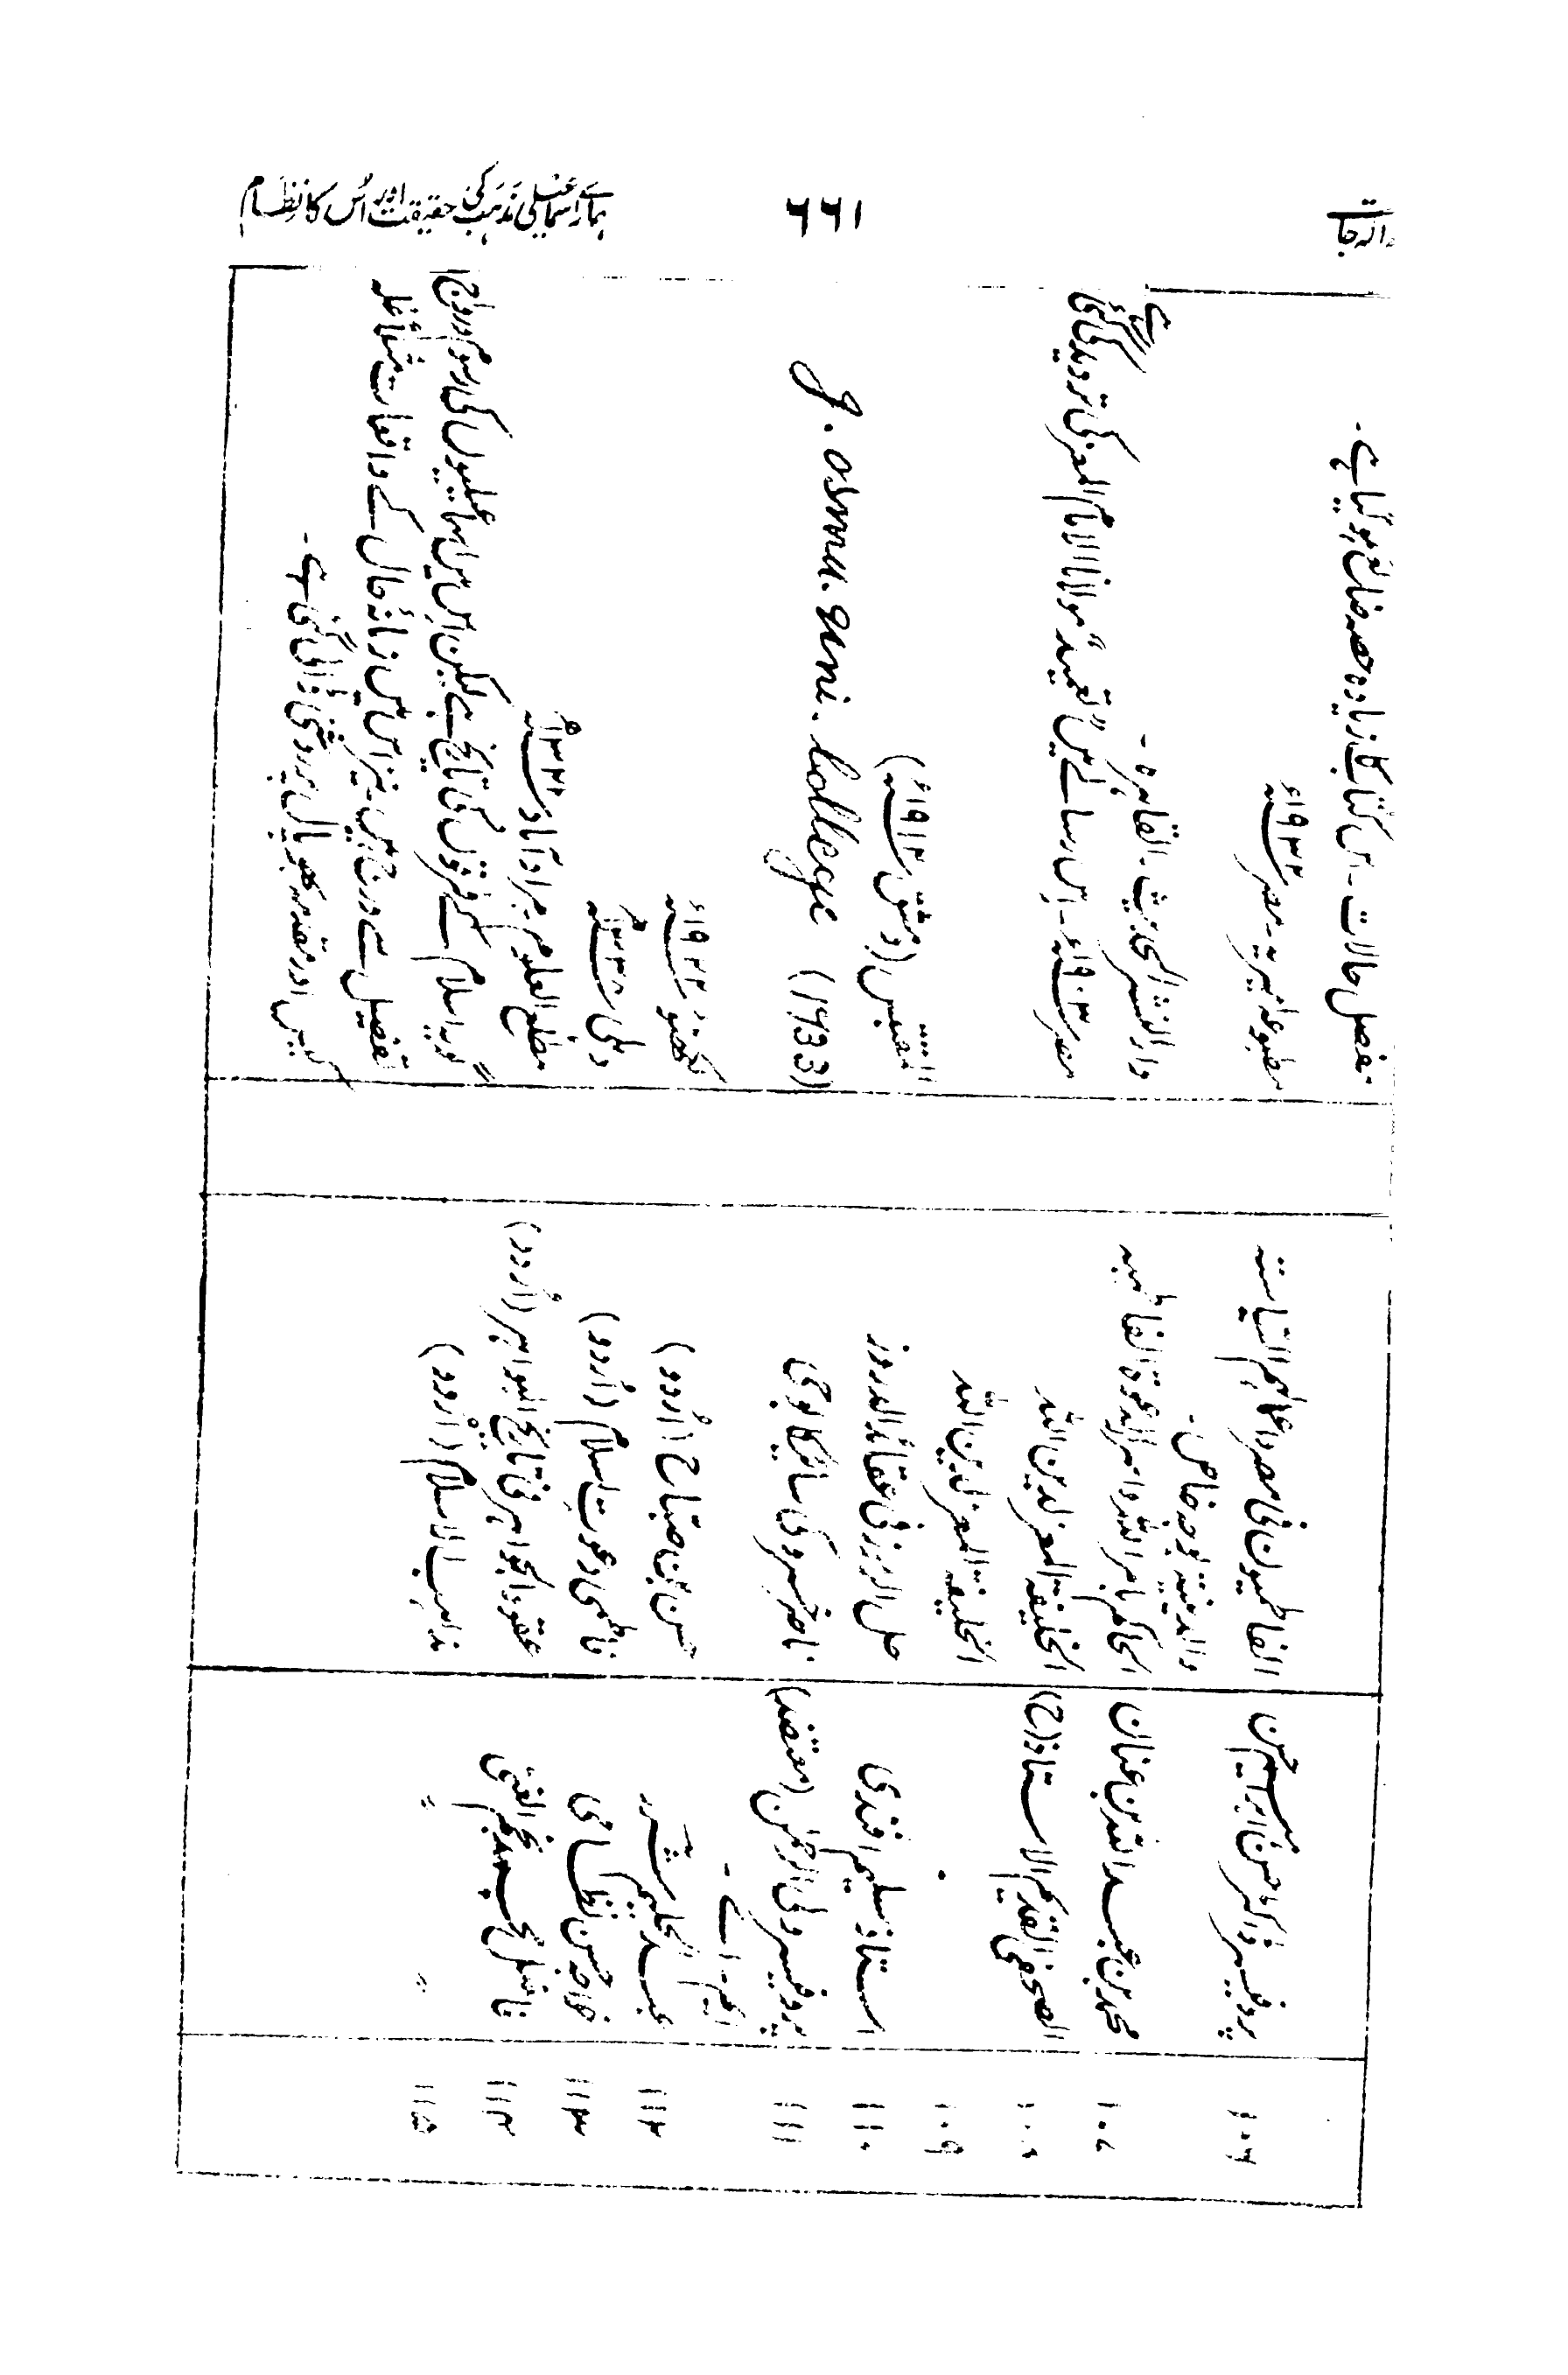 ہمارے اسماعیلی مذہب کی حقیقت اور اُس کا نظام
٦٦١
حوالہ جات
مفصل حالات - اس کتاب کا زیادہ حصہ ضائع ہو گیا ہے -
۱۰۶ پروفیسر ڈاکٹر حسن ابراہیم حسن الفاطمیون فی مصر و اعمالہم السیاسیۃ
والدینیۃ بوجہ خاص - مطبوعہ امیریہ - مصر ۱۹۳۲ء
۱۰۷ محمد بن عبد اللہ بن عنان الحاکم بامر اللہ و اسرار الدعوۃ الفاطمیہ
دار النشر الحدیث - القاہرہ -
۱۰۸ الصحفی القدیم الاستاذ (ح) الخلیفۃ المعز لدین اللہ
مصر ۱۹۰۳ء - اس رسالے میں "تعمید مولانا الامام المعز" کی تردید کی گئی
ہے
۱۰۹ الخلیفۃ المعز لدین اللہ
۱۱۰ استاذ سلیم افندی حل الرمز فی عقائد الدروز
المقتبس (دمشق ۱۹۱۲ء)
۱۱۱ پروفیسر ولی الرحمٰن (معتضد)
ایم - اے - ناصر خسرو کی سائیکالوجی
J. Osma. Uni. College (1933)
۱۱۲ عبد الحلیم شرر حسن بن صباح (اُردو) لکھنؤ ۱۹۲۲ء
۱۱۳ خواجہ حسن نظامی فاطمی دعوت اسلام (اُردو) دہلی ۱۳۳۸ھ
۱۱۴ فاضل محمد نجم الغنی عقود الجواہر فی تاریخ البواہر (اُردو) مطلع العلوم - مرادآباد ۱۳۳۲ھ
۱۱۵ " " مذاہب الاسلام (اُردو)
گو یہ اسلام کے فرقوں کی تاریخ ہے لیکن اس میں اسماعیلیوں کی رسوم و رواج
تفصیل سے درج ہیں - نیز اس میں زمانۂ حال کے واقعات مثلاً غلہ
کیس اور مقدمہ بھوپال پر روشنی ڈالی گئی ہے -